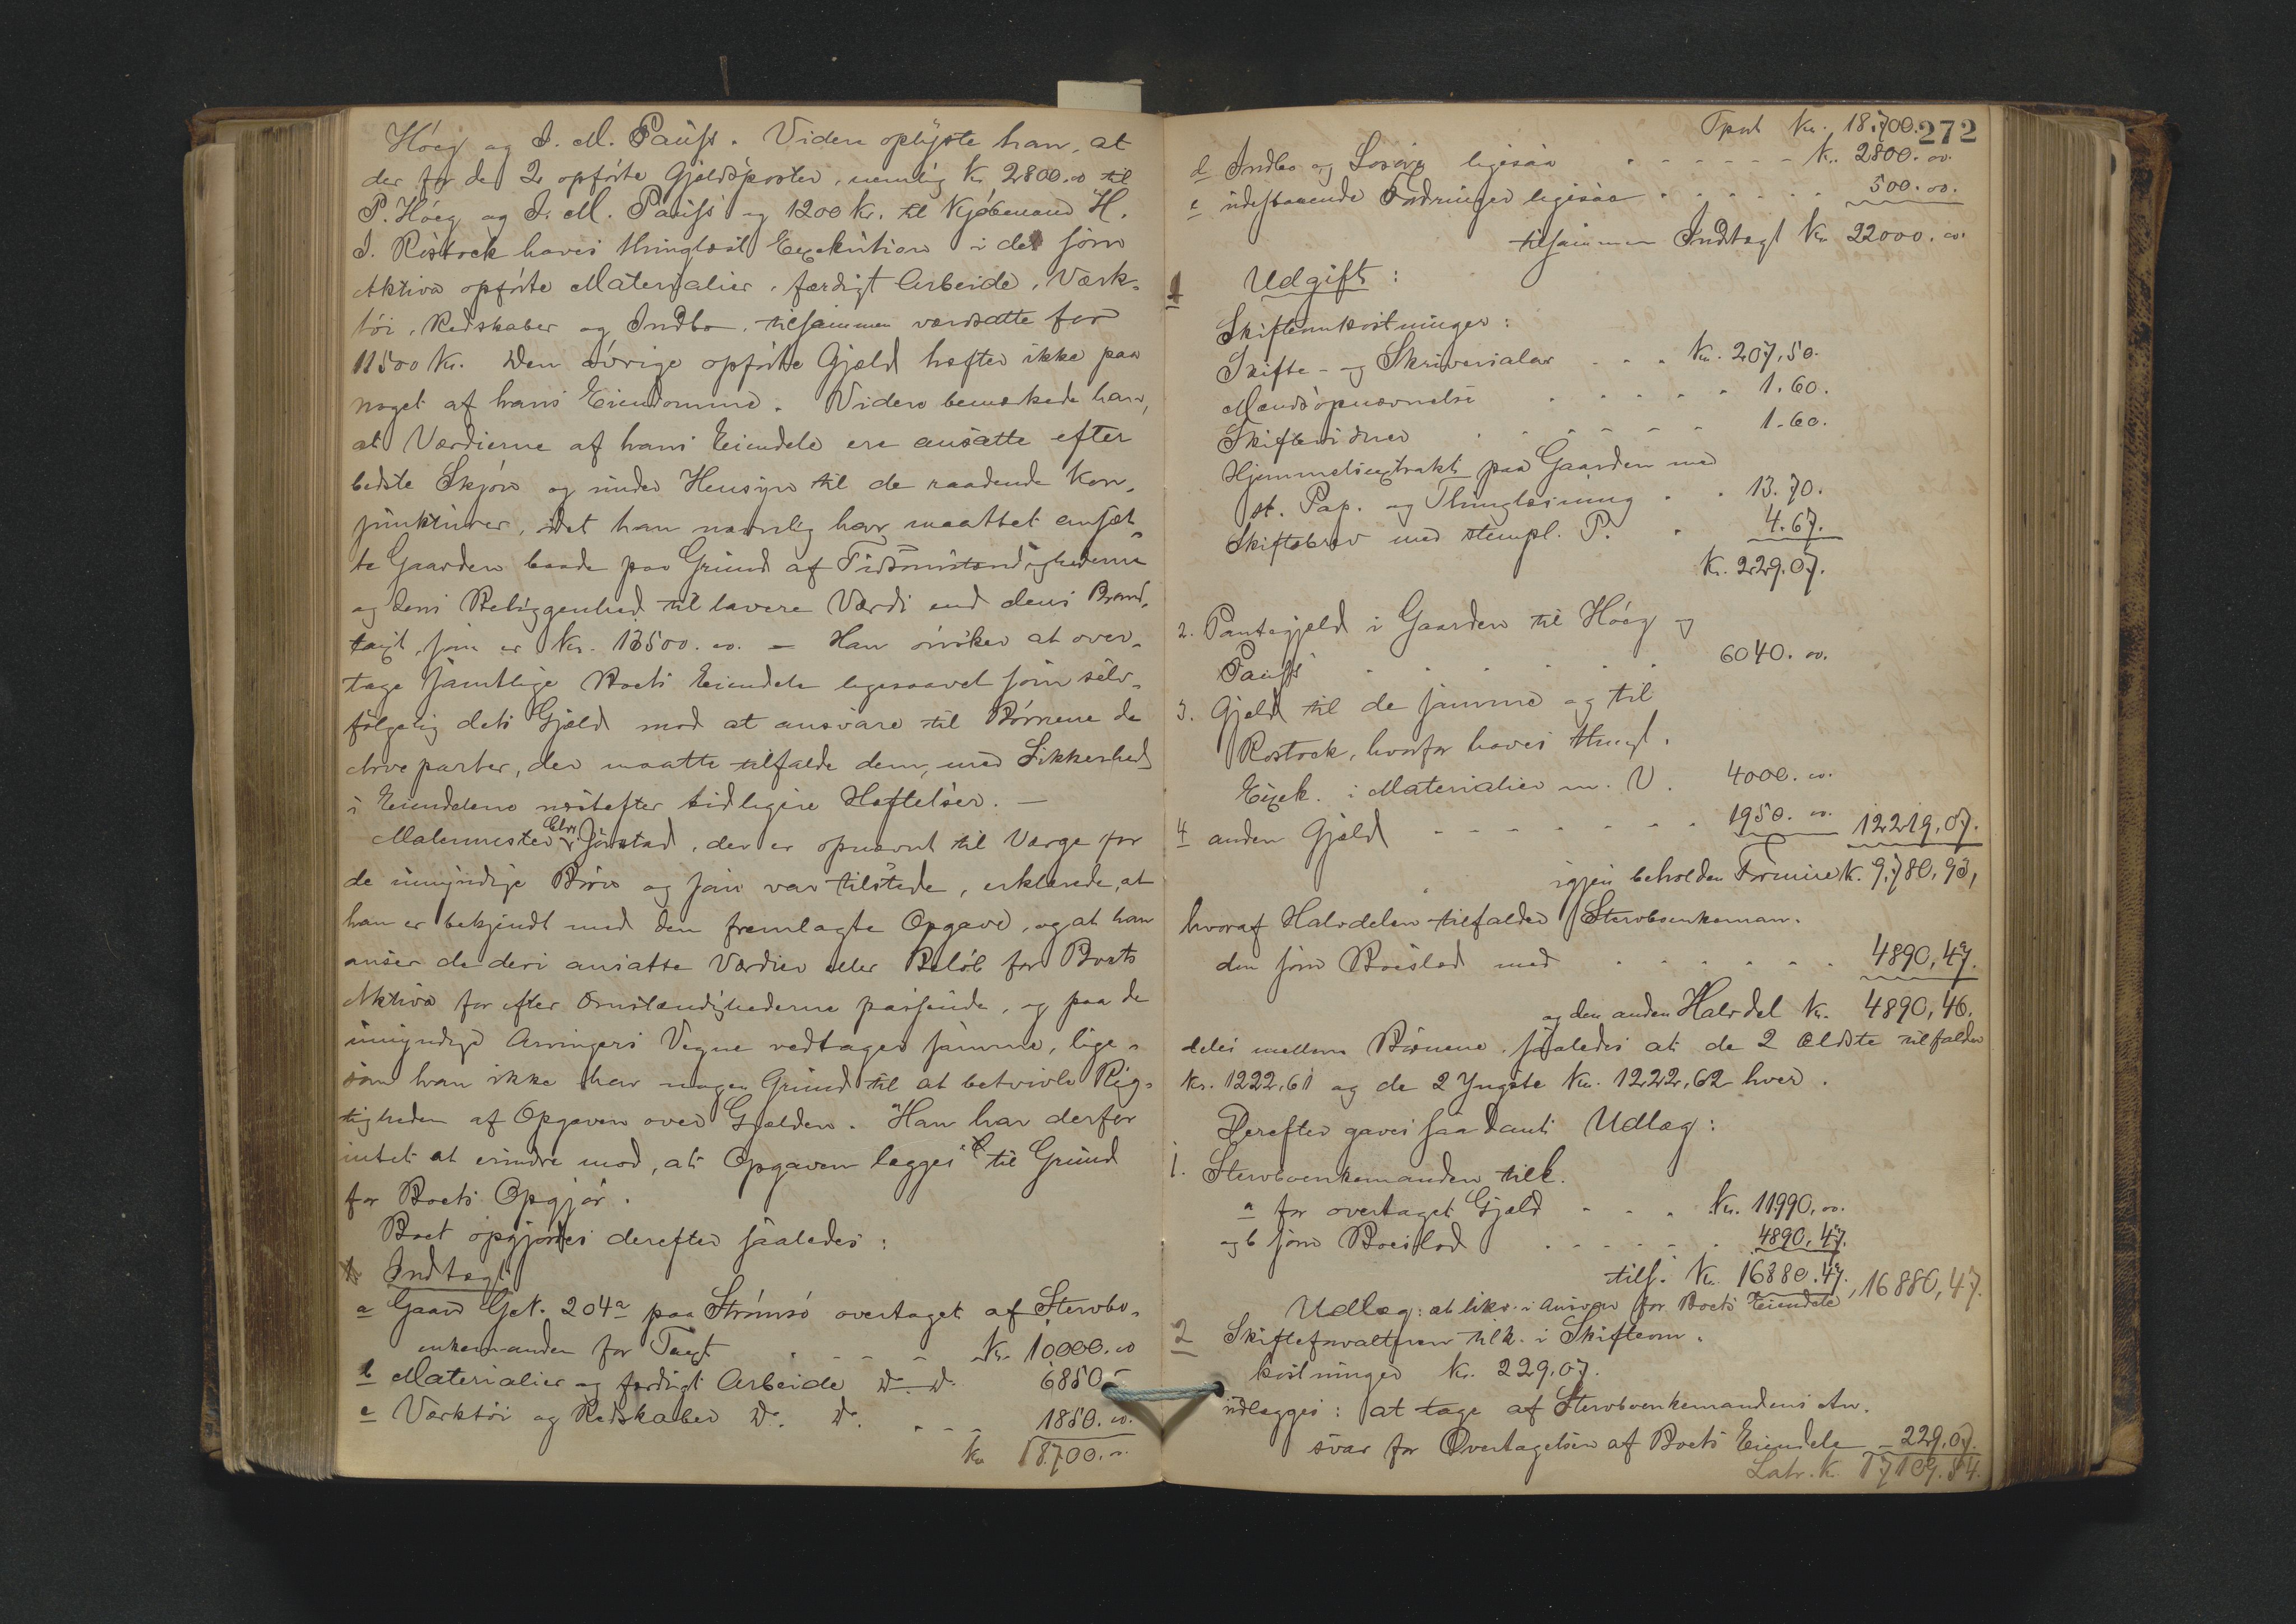 Höeg og I. M. Pauss. Videre oplyste han, at
der for de 2 opförte Gjældsposter, nemlig Kr. 2800.00 til
P. Höeg og I. M. Pauss og 1200 Kr. til Kjöbmand H.
I. Rostock haves thinglæst Exekution i de som
Aktiva opförte Materialier, færdigt Arbeide, Værk-
töi, Redskaber og Indbo, tilsammen værdsatte for
11500 Kr. Den övrige opförte Gjæld hæfter ikke paa
noget af hans Eiendomme. Videre bemærkede han,
at Værdierne af hans Eiendele ere ansatte efter
bedste Skjön og under Hensyn til de raadende Kon-
junkturer, idet han navnlig har maattet ansæt-
te Gaarden baade paa Grund af Tidsomstændighederne
og dens Beliggenhed til lavere Værdi end dens Brand-
taxt, som er Kr. 13500.00. – Han önsker at over-
tage samtlige Boets Eiendele ligesaavel som selv-
fölgelig dets Gjæld mod at ansvare til Börnene de
Arveparter, der maatte tilfalde dem, med Sikkerhed
i Eiendelene næstefter tidligere Heftelser. –
Malermester Chr. Jörstad, der er opnævnt til Værge for
de umyndige Börn og som var tilstede, erklærede, at
han er bekjendt med den fremlagte Opgave, og at han
anser de deri ansatte Værdier eller Belöb for Boets
Aktiva for efter Omstændighederne passende, og paa de
umyndige Arvingers Vegne vedtager samme, lige-
som han ikke har nogen Grund til at betvivle Rig-
tigheden af Opgaven over Gjælden. Han har derfor
intet at erindre mod, at Opgaven lægges til Grund
for Boets Opgjör.
Boet opgjordes derefter saaledes:
Indtægt
a Gaard Gct. 204a paa Strömsö overtaget af Stervbo-
enkemanden for Taxt Kr. 10000.00
b Materialier og færdigt Arbeide Do. Do. 6850 –
c Værktöi og Redskaber Do. Do. 1850.00.
Kr 18700.00
272
Tpnt Kr. 18.700.
d Indbo og Losöre ligesaa Kr. 2800.00.
e udestaaende Fordringer ligesaa 500.00.
tilsammen Indtægt Kr. 22000.00.
Udgift:
1 Skifteomkostninger:
Skifte- og Skriversalær Kr. 207,50.
Mændsopnævnelse 1.60.
Skiftevidner 1.60.
Hjemmelsextrakt paa Gaarden med
st. Pap. og Thinglæsning 13.70.
Skiftebrev med stempl. P. 4.67.
Kr. 229.07.
2. Pantegjæld i Gaarden til Höeg og
Pauss 6040.00.
3. Gjæld til de samme og til
Rostock, hvorfor haves thingl.
Exek. i Materialier m. V. 4000.00.
4 anden Gjæld 1950.00. 12219,07.
igjen beholden Formue K. 9.780,93,
hvoraf Halvdelen tilfalder Stervboenkeman-
den som Boeslod med 4890,47.
og den anden Halvdel Kr. 4890,46.
deles mellem Börnene saaledes at de 2 Ældste tilfalder
Kr. 1222,61 og de 2 Yngste Kr. 1222,62 hver.
Derefter gaves saadant Udlæg:
1. Stervboenkemanden tilk.
a for overtaget Gjæld Kr. 11990,00.
og b som Boeslod 4890,47.
tils. Kr. 16880.47. 16880,47.
Udlæg: at likv. i Ansvar for Boets Eiendele
2 Skifteforvaltren tilk. i Skifteom-
kostninger Kr. 229.07.
udlægges: at tage af Stervboenkemandens An-
svar for Overtagelsen af Boets Eiendele – 229.07.
Latr. K. 17109.54.